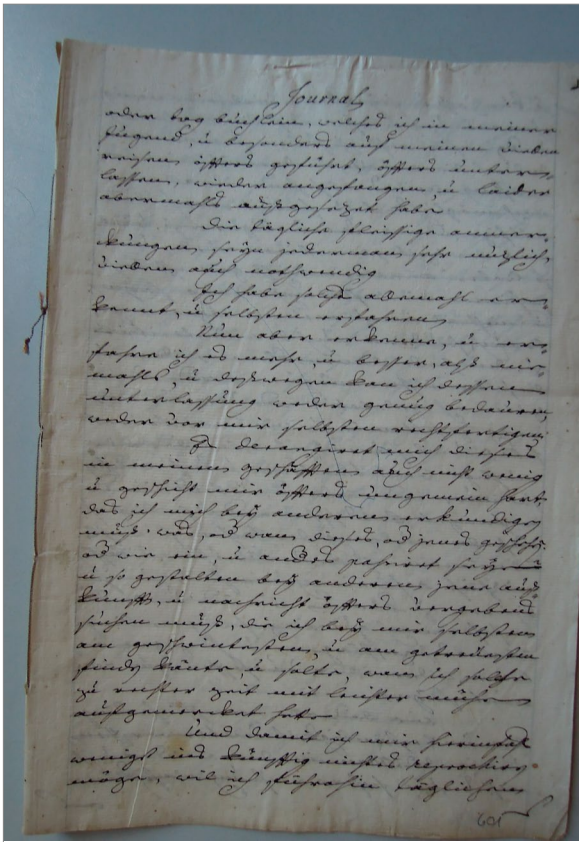 Journal
oder tag büchlein, welches ich in meiner
Jugend, u besonders auf meinen vielen
reisen öffters geführt, öffters unter-
lassen, wieder angefangen, u laider
abermahls außgesezet habe
Die tägliche fleissige anmer-
kungen seyn jederman sehr nuzlich,
vielen auch nothwendig
Ich habe solches allemahl er-
kennt, u selbsten erfahren
Nun aber erkenne, u er-
fahre ich es mehr, u besser, alß nie-
mahls, u deßwegen kan ich dessen
unterlassung weder genug bedauren,
weder vor mir selbsten rechtfertigen
Es derangiret mich dieses
in meinen geschäfften auch nicht wenig
u geschicht mir öffters ungemein hart,
das ich mich bey anderen erkundigen
muß, was, od wann dieses, od jenes geschehen,
od wie ein, u anders passirt seye
u so gestalten bey anderen jene auß-
kunfft, u nachricht öffters vergebens
suchen muß, die ich bey mir selbsten
am geschwintesten, u am getreuesten
finden könte, u solte, wan ich solche
zu rechter zeit mit leichter mühe
aufgemerket hete
Und damit ich mir hierin
wenigst ins künfftig nichts reprochiren
möge, wil ich führohin täglichen
601